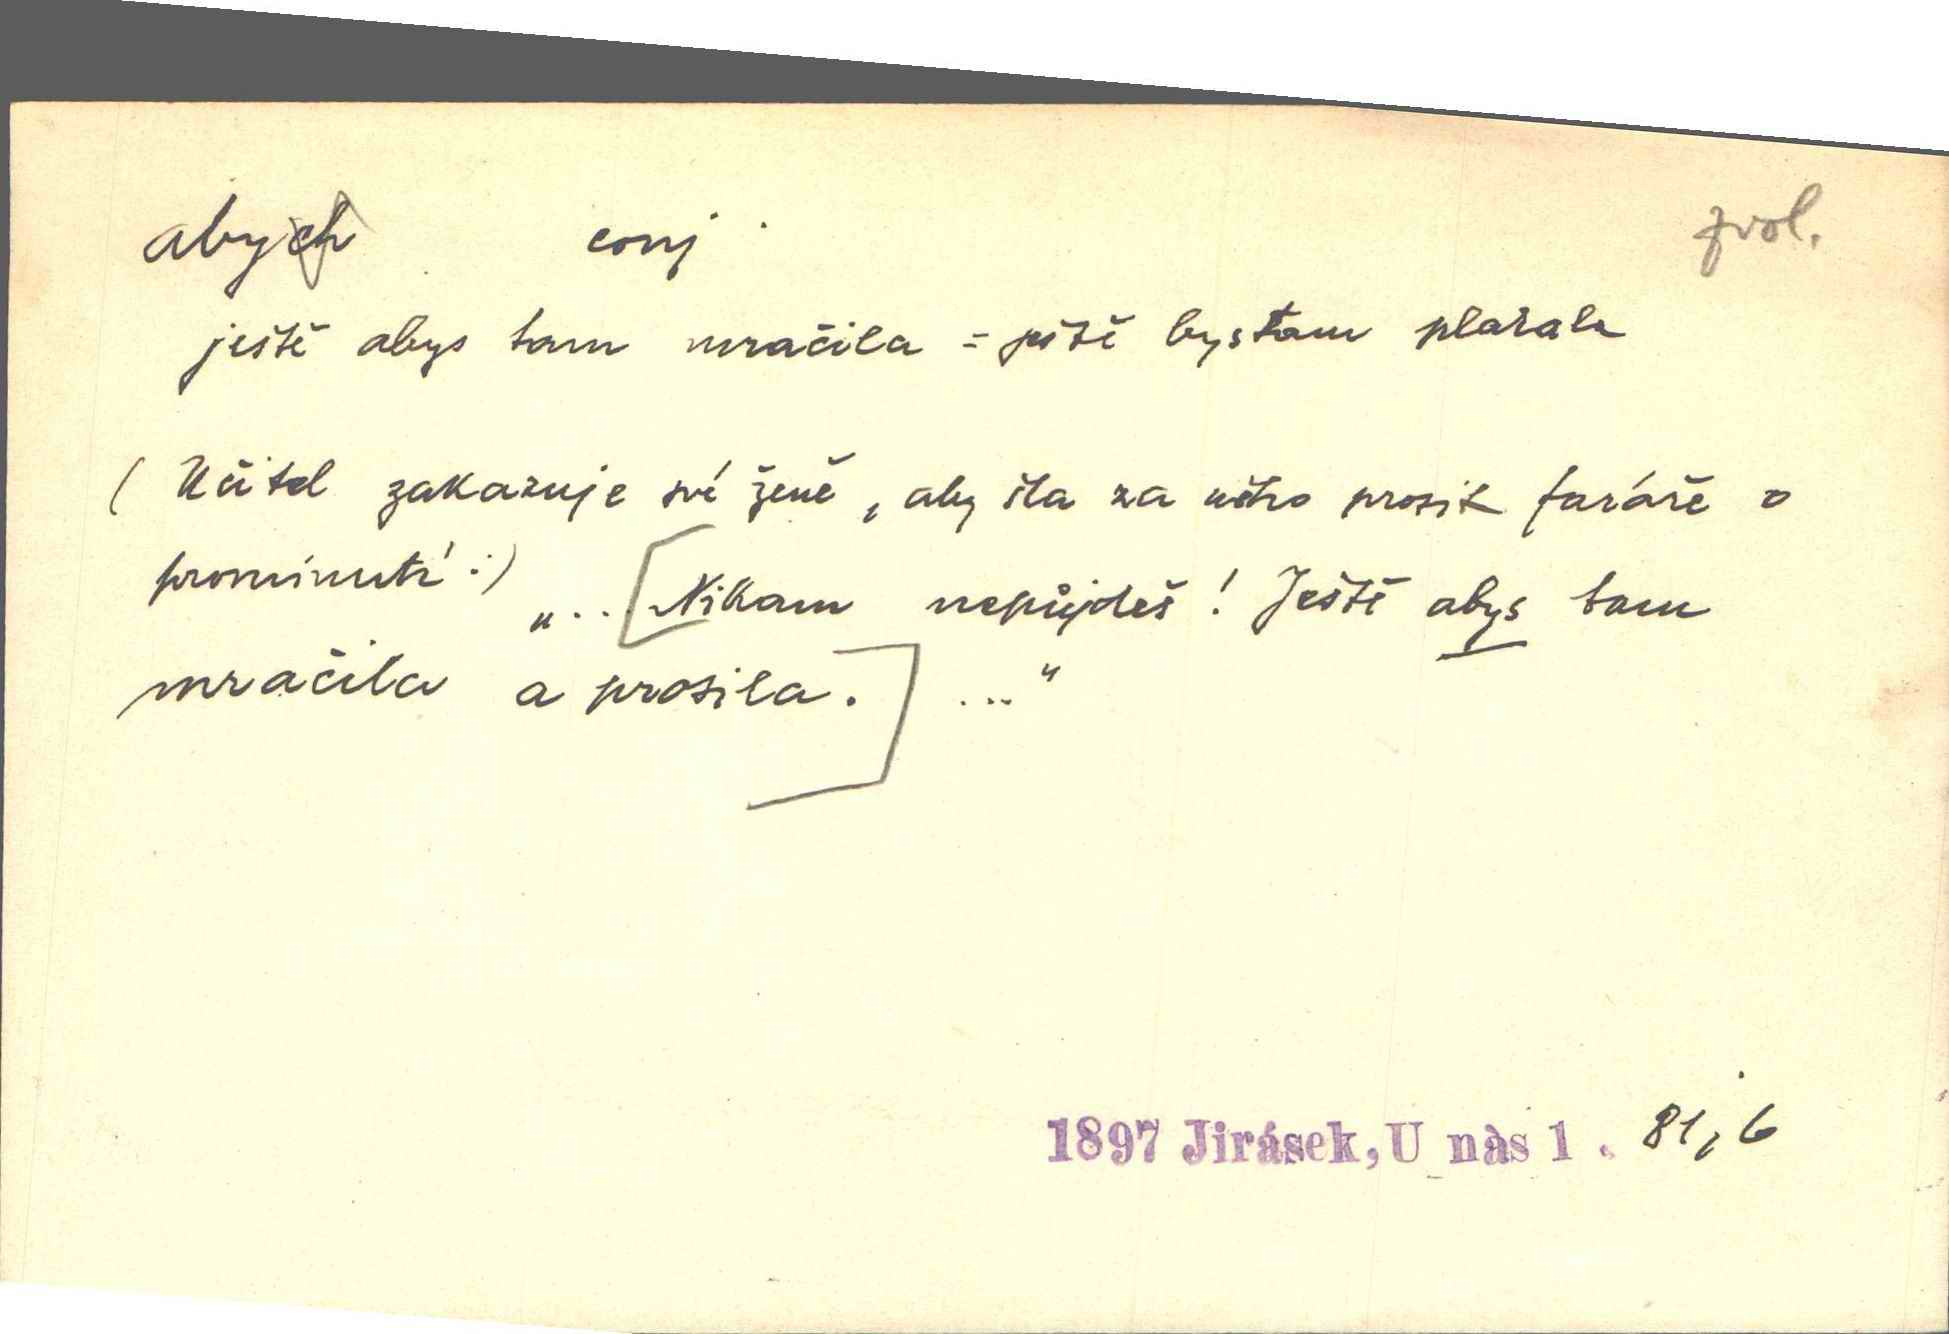 abych conj. zvol.
ještě abys tam mračila = ještě bys tam plakala
( Učitel zakazuje své ženě, aby šla za něho prosit faráře o
prominutí:) „... [Nikam nepůjdeš! Ještě abys tam
mračila a prosila.] ..."
1897 Jirásek, U nàs 1. 81, 6